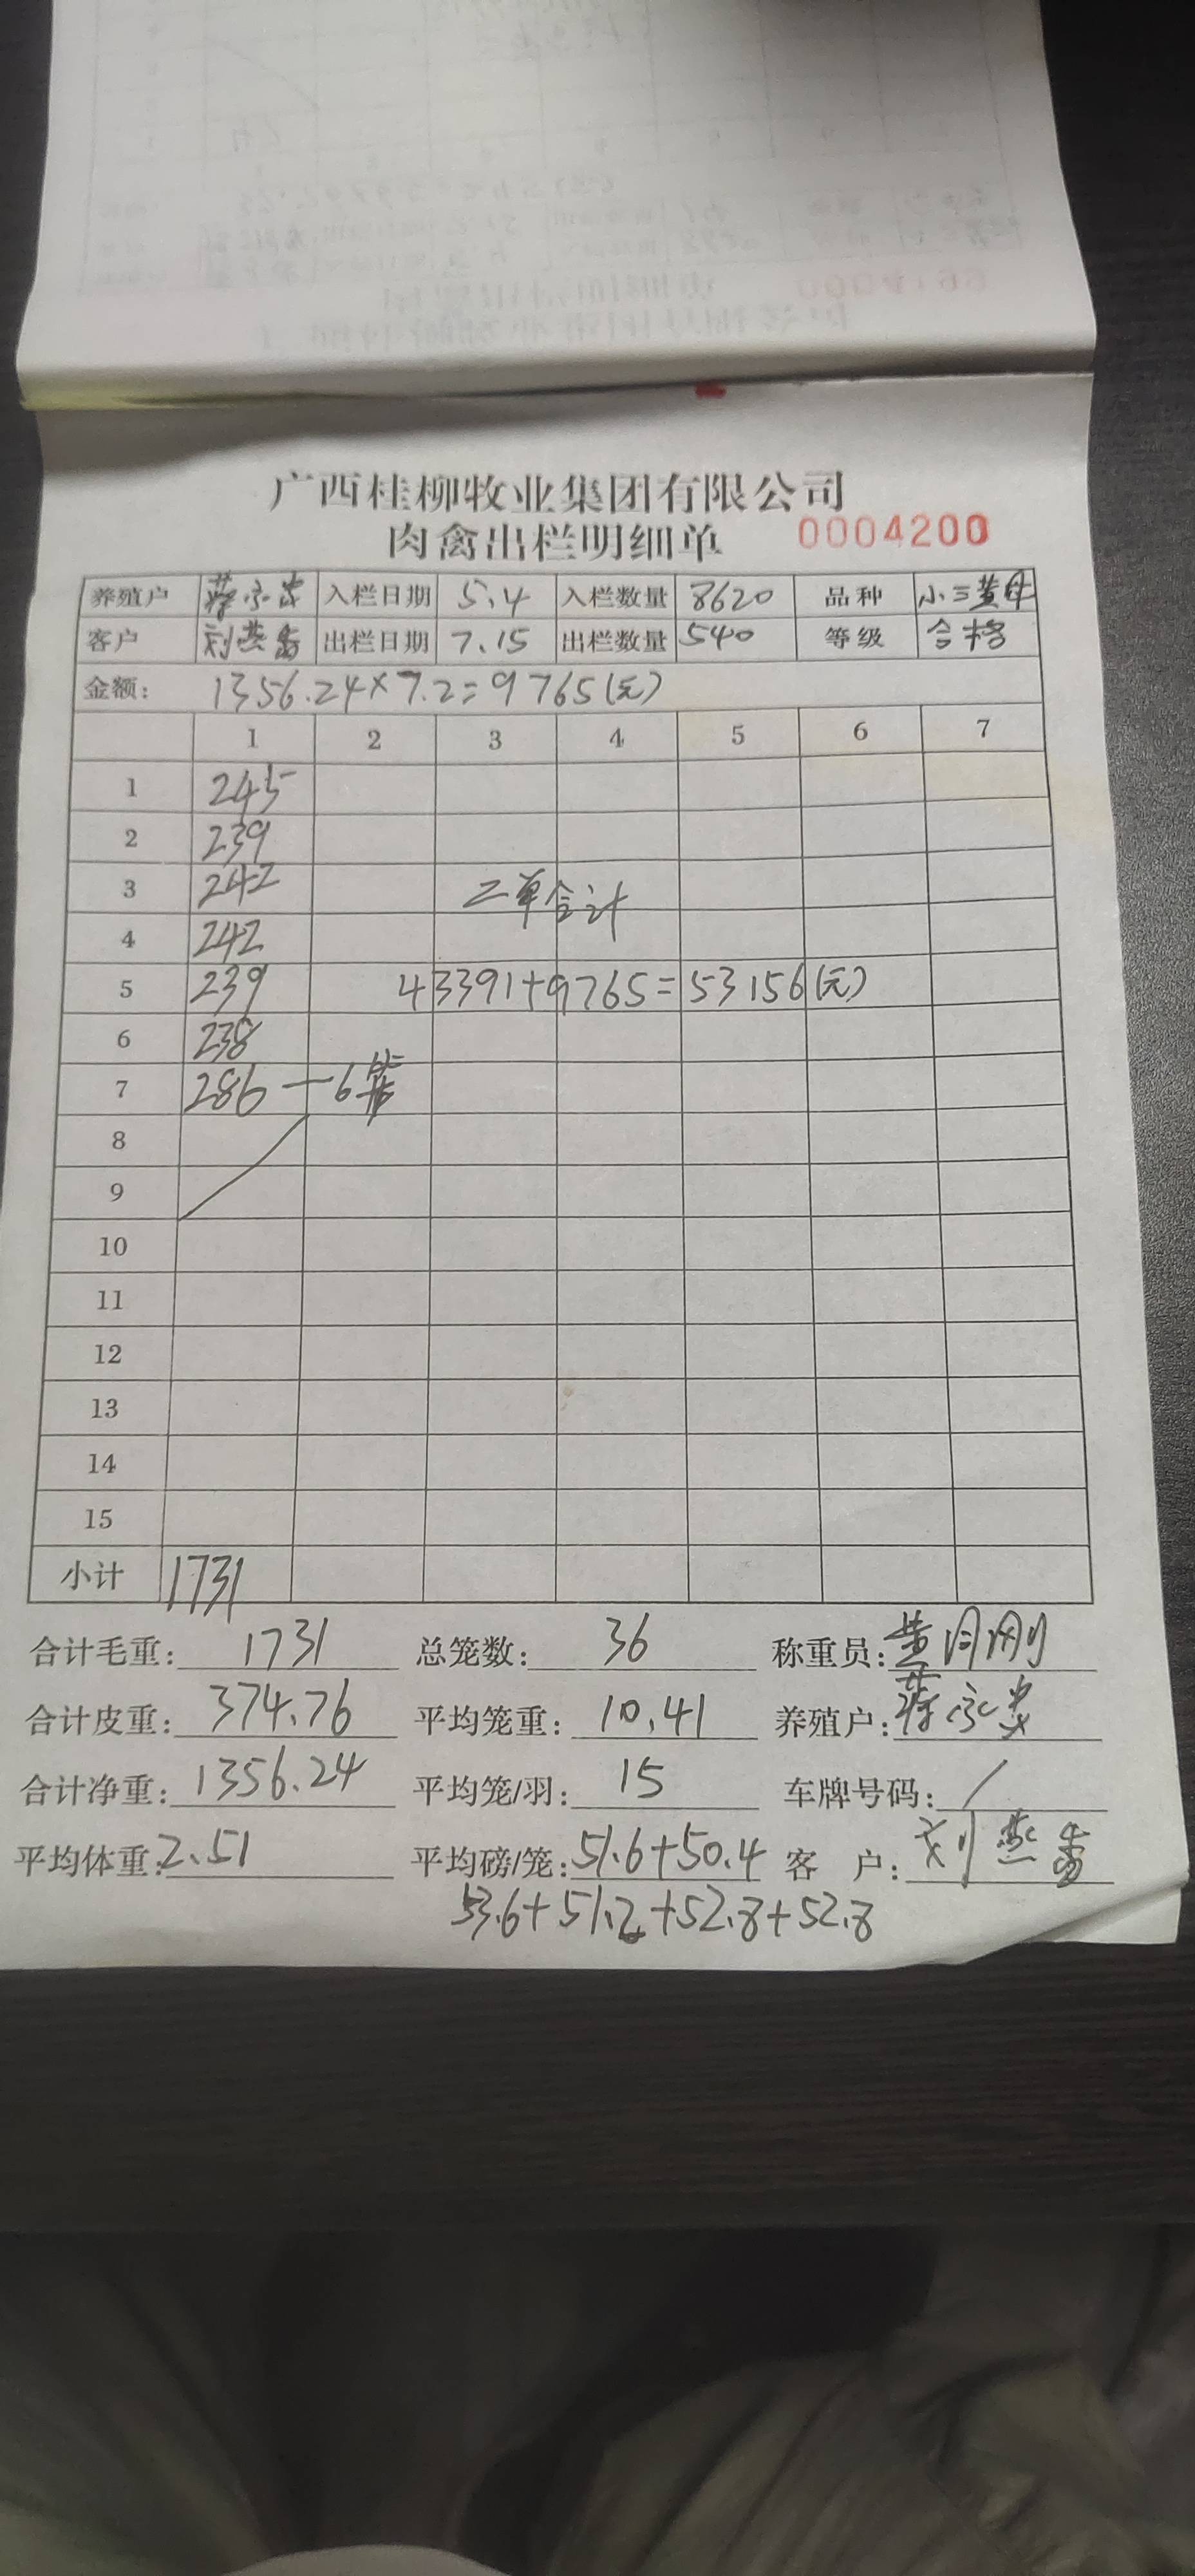 广西桂柳牧业集团有限公司
肉禽出栏明细单 0004200
养殖户 入栏日期 5.4 入栏数量 8620 品种 小三黄母
客户 刘燕香 出栏日期 7.15 出栏数量 540 等级 合格
金额: 1356.24×7.2=9765(元)
1 2 3 4 5 6 7
1 245
2 239
3 242 二单合计
4 242
5 239 43391+9765=53156(元)
6 238
7 286 — 6笼
8
9
10
11
12
13
14
15
小计 1731
合计毛重: 1731 总笼数: 36 称重员:
合计皮重: 374.76 平均笼重: 10.41 养殖户:
合计净重: 1356.24 平均笼/羽: 15 车牌号码: /
平均体重: 2.51 平均磅/笼: 51.6+50.4 客 户: 刘燕香
53.6+51.2+52.8+52.8